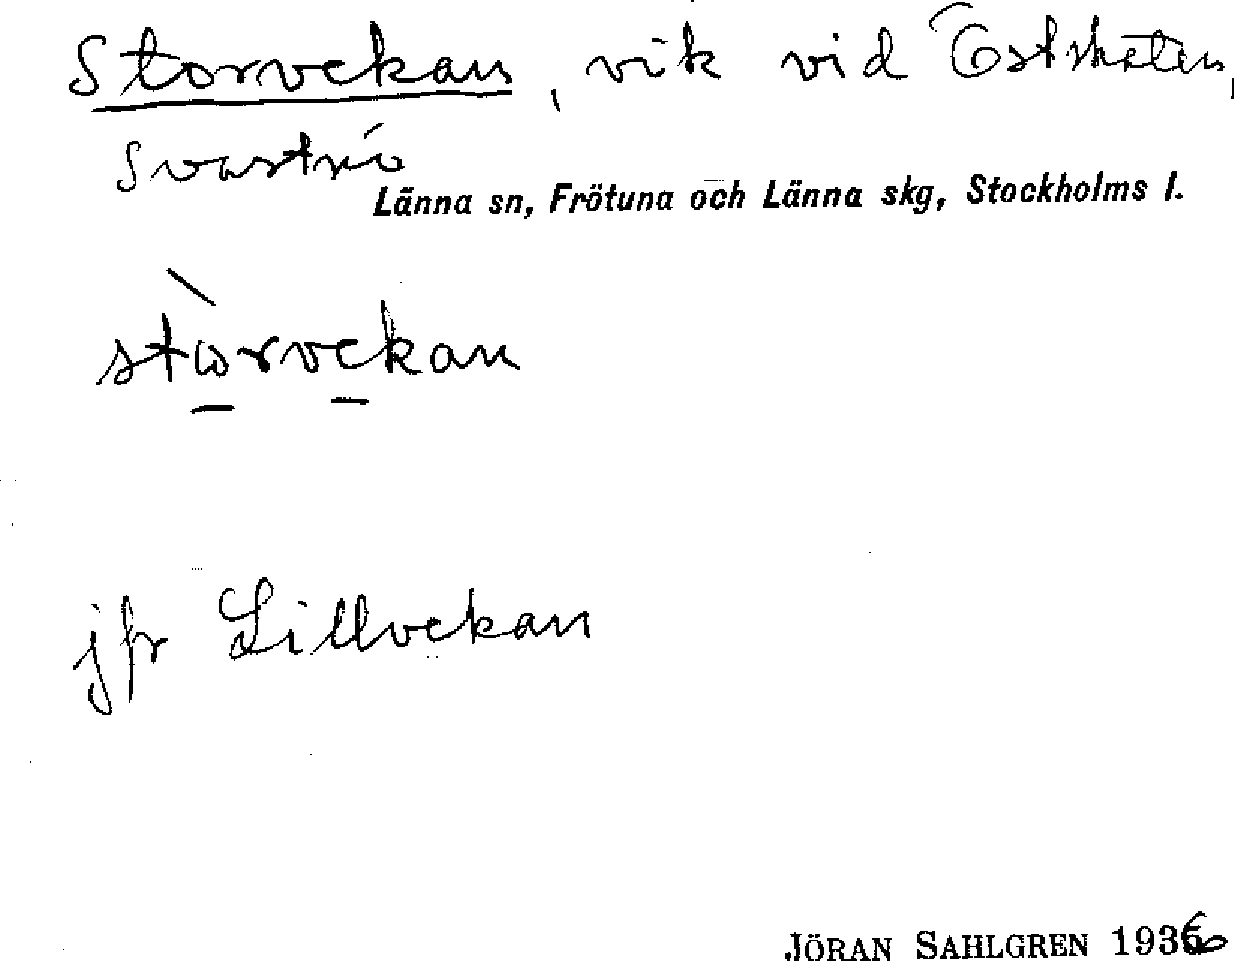 Storvekan, vik vid Östskaten,
Svartnö
Länna sn, Frötuna och Länna skg, Stockholms l.
stòrvekan
jfr Lillvekan
JÖRAN SAHLGREN 1936